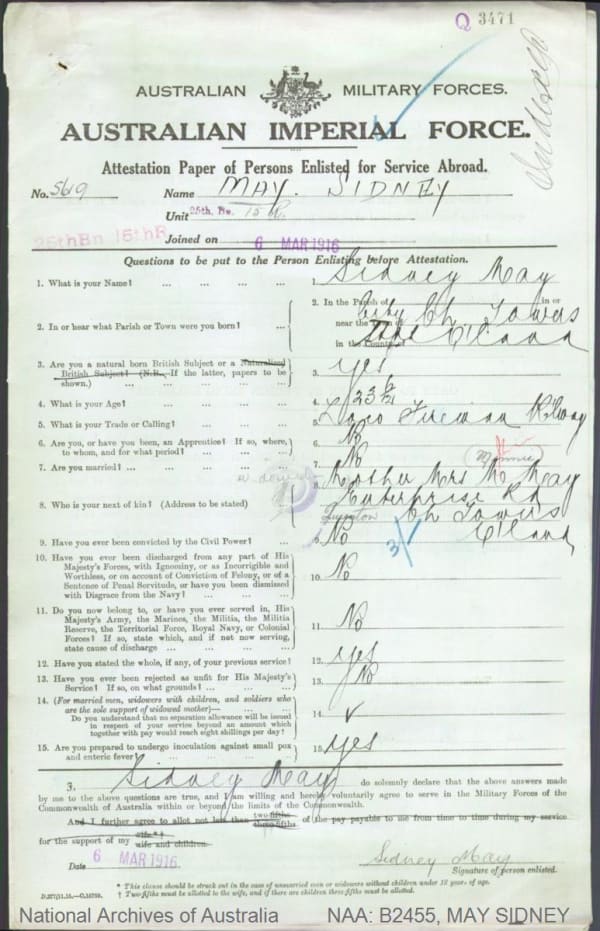 Q 3471
AUSTRALIAN MILITARY FORCES.
AUSTRALIAN IMPERIAL FORCE.
Attestation Paper of Persons Enlisted for Service Abroad.
No. 5619 Name MAY. SIDNEY
Unit 25th. Bn. 15 R.
25thBn 15thR
Joined on 6 MAR 1916
Questions to be put to the Person Enlisting before Attestation.
1. What is your Name? ... ... ... ... 1. Sidney May
2. In or hear what Parish or Town were you born? ... 2. In the Parish of in or
near the Town of Ch Towers
in the County of Q'land
3. Are you a natural born British Subject or a Naturalized
British Subject? (N.B.—If the latter, papers to be
shown.) ... ... ... ... ... 3. yes
4. What is your Age? ... ... ... ... 4. 23
5. What is your Trade or Calling? ... ... ... 5. Loco Fireman Rilway
6. Are you, or have you been, an Apprentice? If so, where,
to whom, and for what period? ... ... ... 6. No
7. Are you married? ... ... ... ... ... 7. No
8. Who is your next of kin? (Address to be stated) 8. Mother Mrs M May
(Minnie)
Enterprise Rd
Queenton Ch Towers
Q'land
3/-
9. Have you ever been convicted by the Civil Power? ... 9. No
10. Have you ever been discharged from any part of His
Majesty's Forces, with Ignominy, or as Incorrigible and
Worthless, or on account of Conviction of Felony, or of a
Sentence of Penal Servitude, or have you been dismissed
with Disgrace from the Navy? ... ... ... 10. No
11. Do you now belong to, or have you ever served in, His
Majesty's Army, the Marines, the Militia, the Militia
Reserve, the Territorial Force, Royal Navy, or Colonial
Forces? If so, state which, and if not now serving,
state cause of discharge ... ... ... ... 11. No
12. Have you stated the whole, if any, of your previous service? 12. yes
13. Have you ever been rejected as unfit for His Majesty's
Service? If so, on what grounds? ... ... ... 13. No
14. (For married men, widowers with children, and soldiers who
are the sole support of widowed mother)—
Do you understand that no separation allowance will be issued
in respect of your service beyond an amount which
together with pay would reach eight shillings per day? 14. ✓
15. Are you prepared to undergo inoculation against small pox
and enteric fever? ... ... ... ... 15. yes
3. Sidney May do solemnly declare that the above answers made
by me to the above questions are true, and I am willing and hereby voluntarily agree to serve in the Military Forces of the
Commonwealth of Australia within or beyond the limits of the Commonwealth.
And I further agree to allot not less than two-fifths three-fifths of the pay payable to me from time to time during my service
for the support of my wife*† wife and children.
Date 6 MAR 1916. Sidney May
Signature of person enlisted.
* This clause should be struck out in the case of unmarried men or widowers without children under 18 years of age.
† Two-fifths must be allotted to the wife, and if there are children three-fifths must be allotted.
National Archives of Australia NAA: B2455, MAY SIDNEY